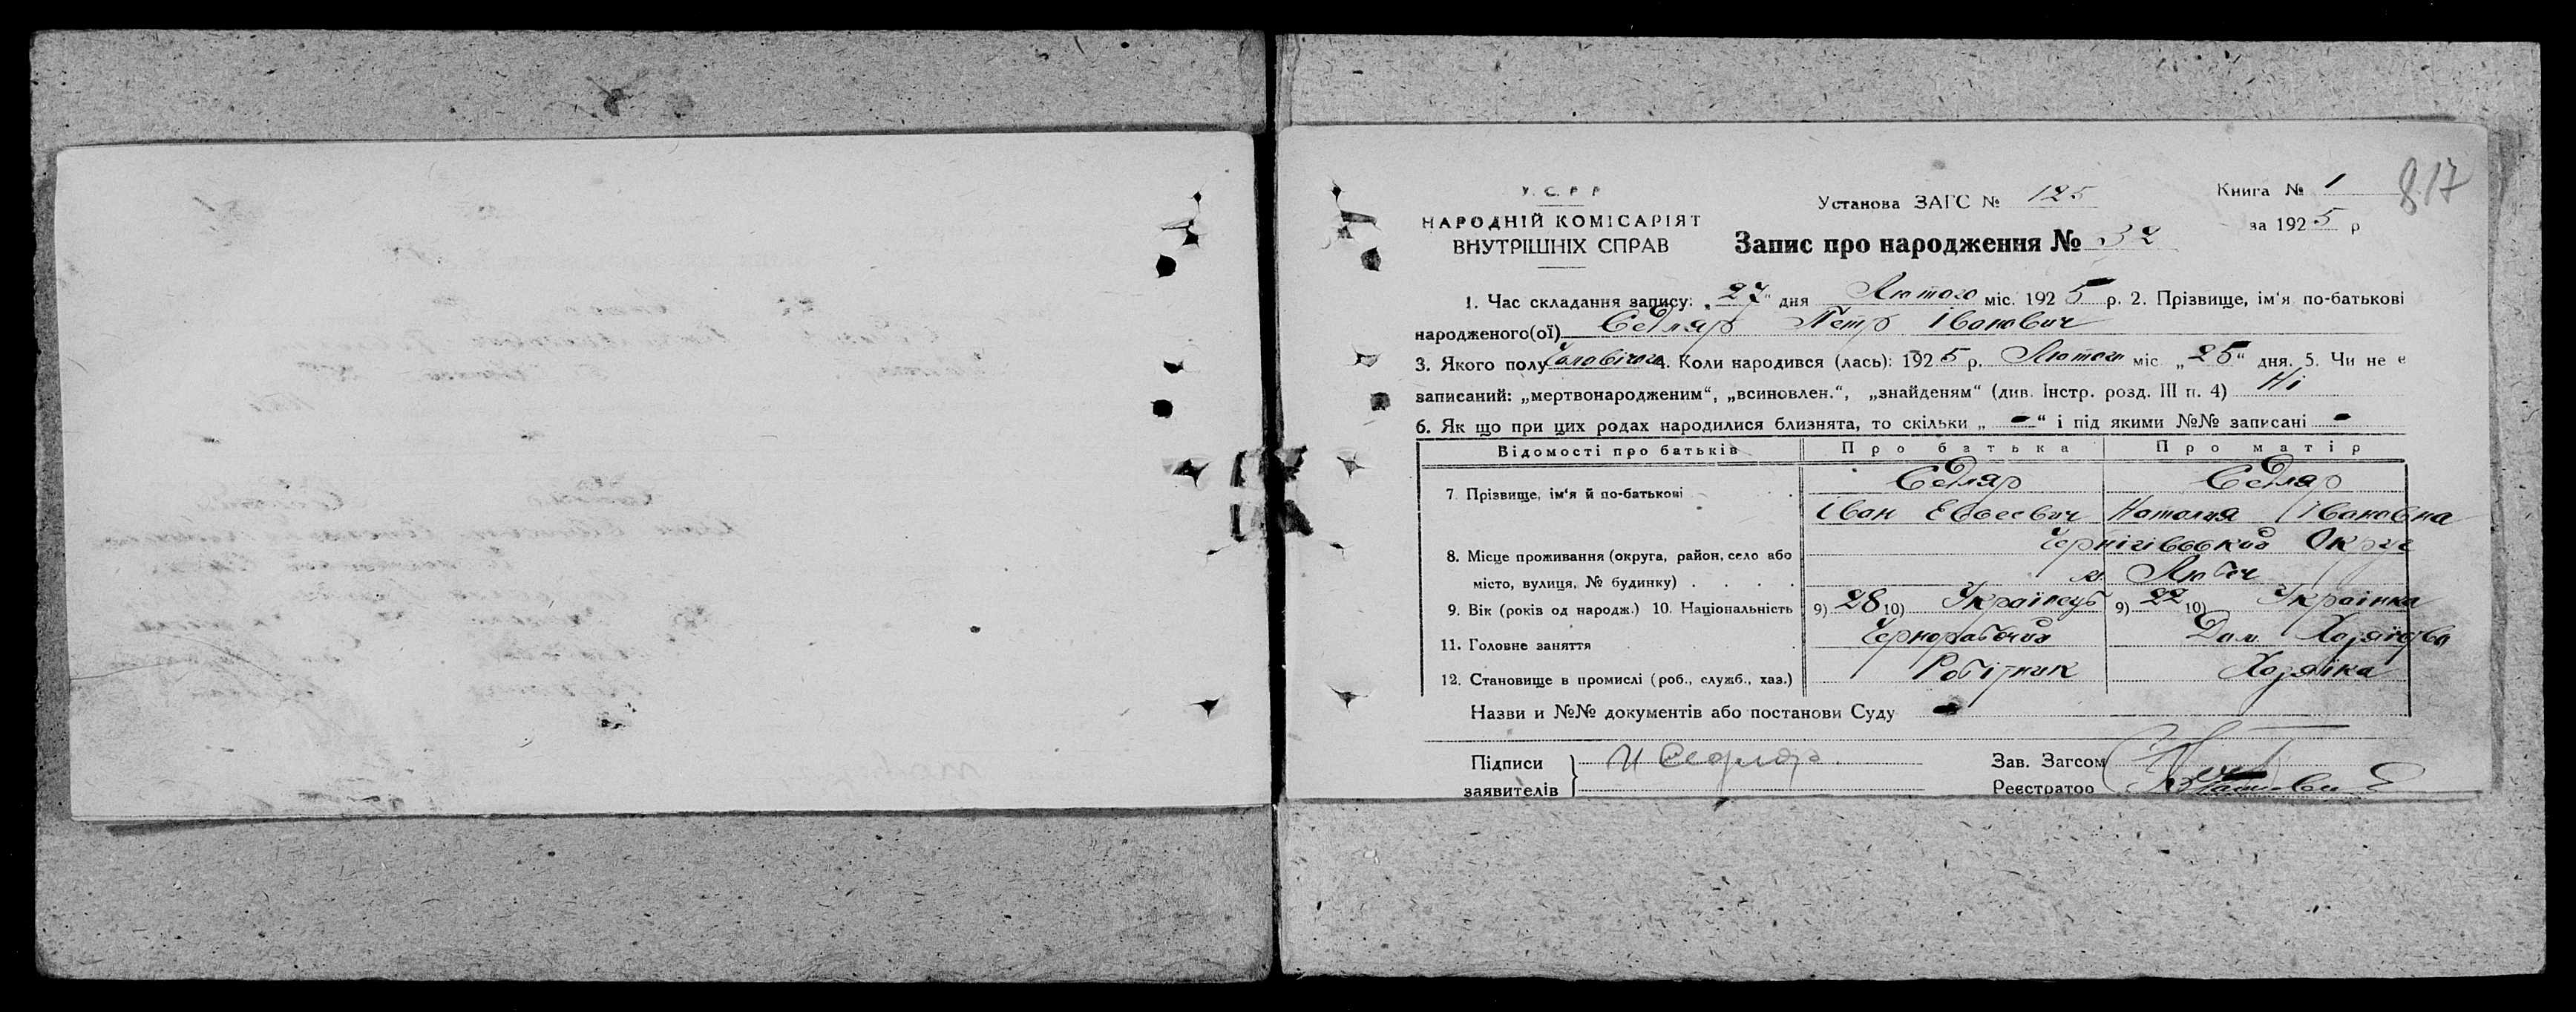 817
У.С.Р.Р.
НАРОДНІЙ КОМІСАРІЯТ
ВНУТРІШНІХ СПРАВ
Установа ЗАГС № 125
Книга № 1
за 1925 р
Запис про народження № 32
1. Час складання запису: „27" дня Лютого міс. 1925 р. 2. Прізвище, ім'я по-батькові
народженого(ої) Седляр Петр Іванович
3. Якого полу Чоловічого 4. Коли народився (лась): 1925 р. Лютого міс „25" дня. 5. Чи не є
записаний: „мертвонародженим", „всиновлен.", „знайденям" (див. Інстр. розд. III п. 4) Ні
6. Як що при цих родах народилися близнята, то скільки „ - " і під якими №№ записані -
Відомості про батьків Про батька Про матір
7. Прізвище, ім'я й по-батькові Седляр Седляр
Іван Евсеевич Наталия Івановна
8. Місце проживання (округа, район, село або Чернігівський Округ
місто, вулиця, № будинку) м. Любеч
9. Вік (років од народж.) 10. Національність 9) 28 10) Українець 9) 22 10) Українка
11. Головне заняття Чернорабочий Дом. Хозяйство
12. Становище в промислі (роб., служб., хаз.) Робітник Хозяїка
Назви и №№ документів або постанови Суду -
Підписи И Седляр Зав. Загсом
заявителів Реєстратор